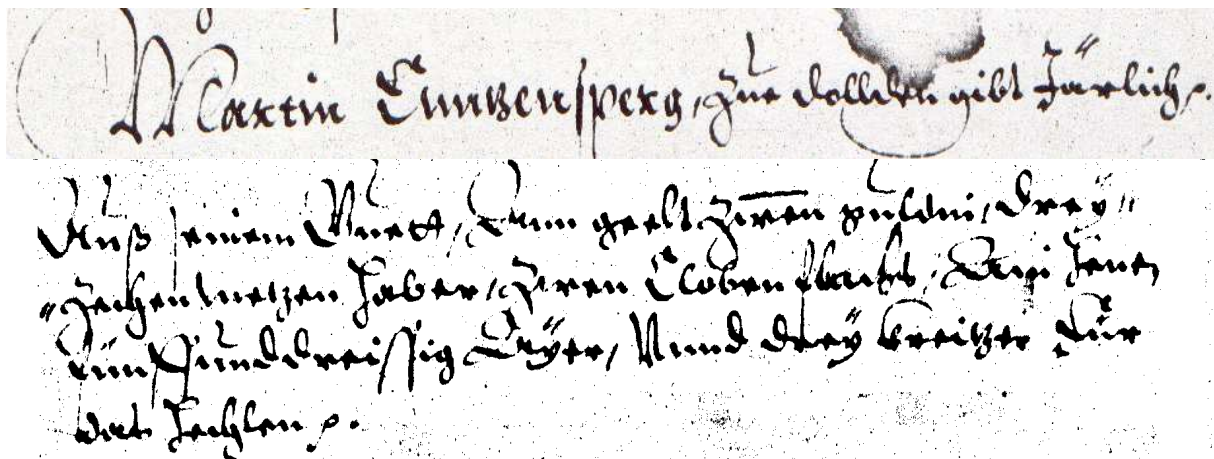 Martin Cuntzensperg, zue dollden gibt Järlich.
Auß seinem Guett, Ann geelt zwen gulden, drey-
-zechen metzen haber, zwen Cloben flachs, Ain henen
Fünffunddreissig Ayer, Vnnd drey kreitzer Für
das hechlen.